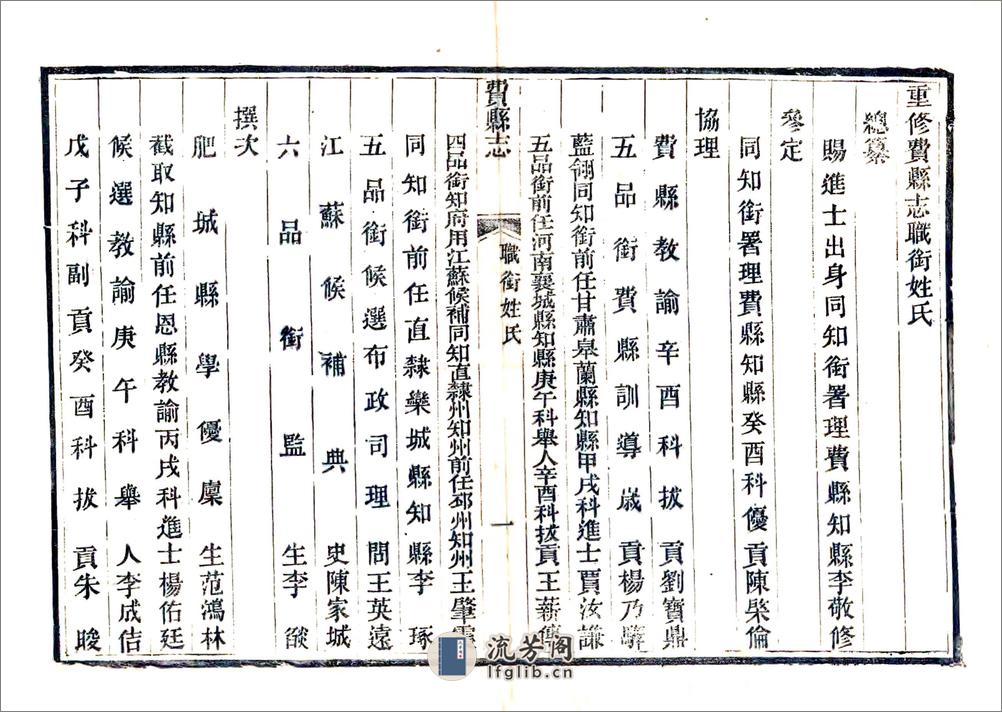 重修費縣志職銜姓氏
總纂
賜進士出身同知銜署理費縣知縣李敬修
參定
同知銜署理費縣知縣癸酉科優貢陳棨倫
協理
費縣教諭辛酉科拔貢劉寶鼎
五品銜費縣訓導歲貢楊乃驊
藍翎同知銜前任甘肅皋蘭縣知縣甲戌科進士賈汝謙
五品銜前任河南襄城縣知縣庚午科舉人辛酉科拔貢王薪傳
費縣志
職銜姓氏
一
四品銜知府用江蘇候補同知直隸州知州前任邳州知州王肇雲
同知銜前任直隸欒城縣知縣李琢
五品銜候選布政司理問王英遠
江蘇候補典史陳家城
六品銜監生李燄
撰次
肥城縣學優廩生范鴻林
截取知縣前任恩縣教諭丙戌科進士楊佑廷
候選教諭庚午科舉人李成佶
戊子科副貢癸酉科拔貢朱畯
流芳閣
lfglib.cn